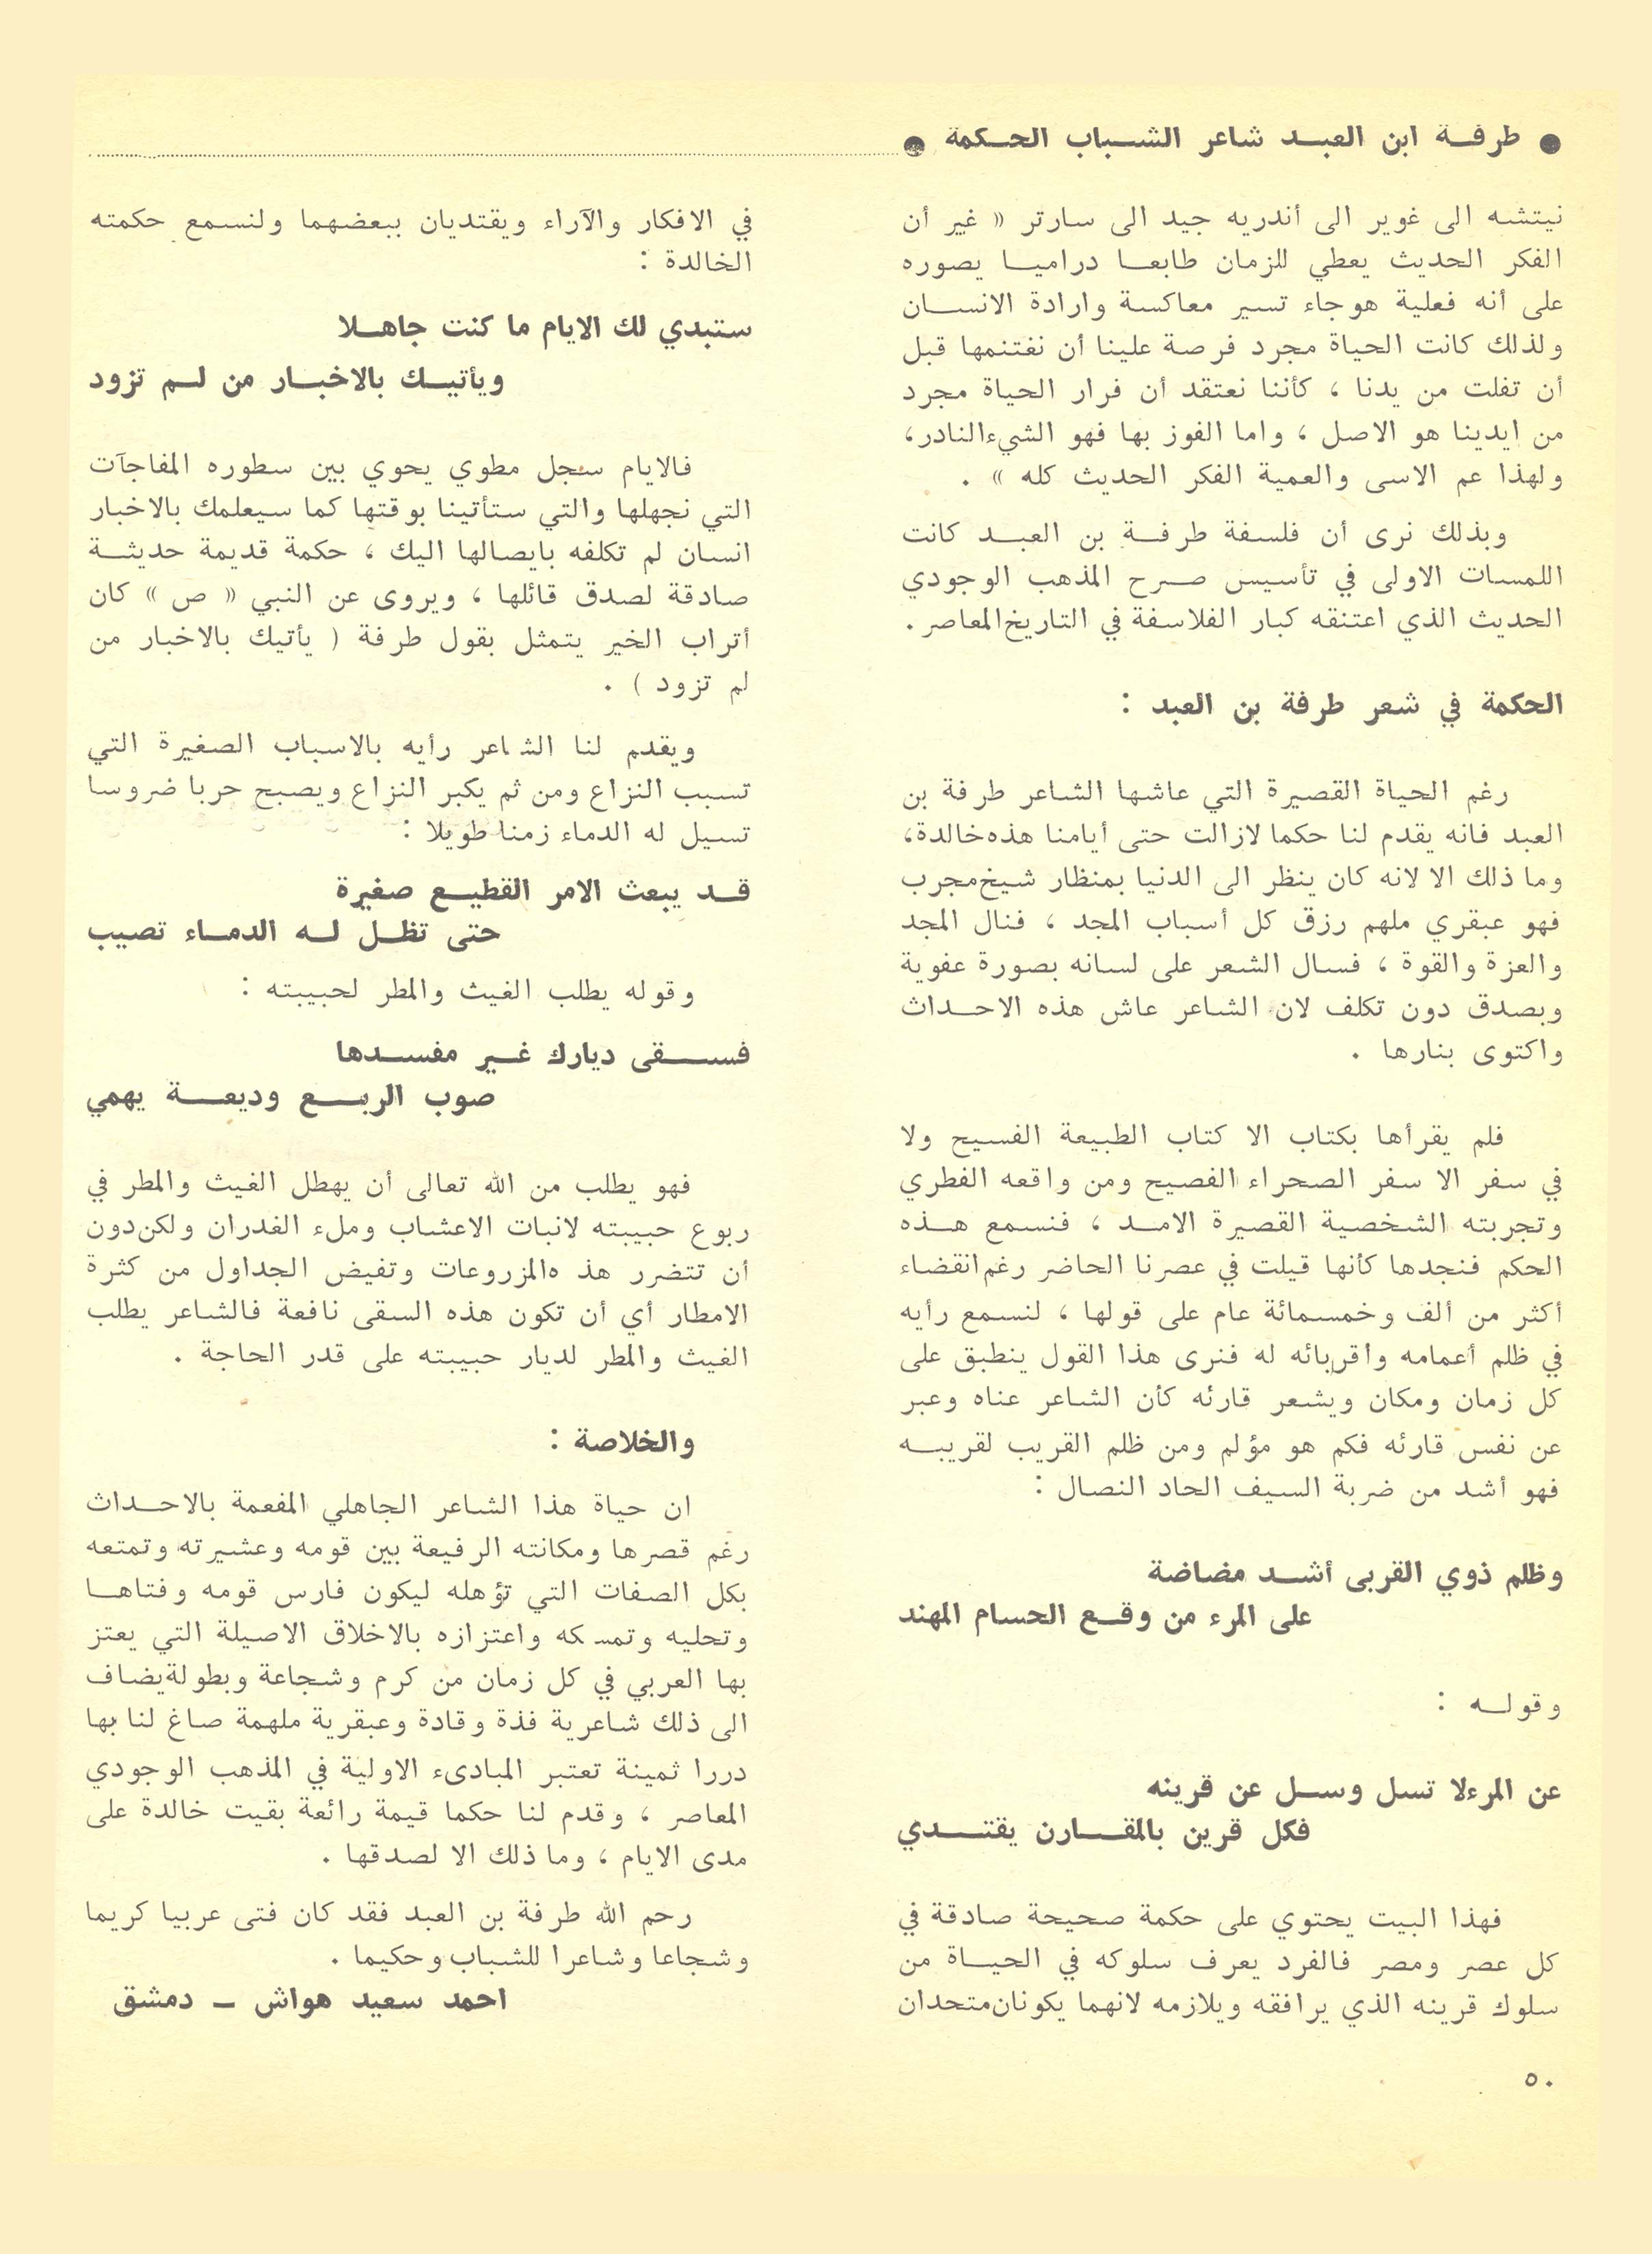 ● طرفة ابن العبد شاعر الشباب الحكمة ●
نيتشه الى غوير الى أندريه جيد الى سارتر « غير أن
الفكر الحديث يعطي للزمان طابعا دراميا يصوره
على أنه فعلية هوجاء تسير معاكسة وارادة الانسان
ولذلك كانت الحياة مجرد فرصة علينا أن نغتنمها قبل
أن تفلت من يدنا ، كأننا نعتقد أن فرار الحياة مجرد
من ايدينا هو الاصل ، واما الفوز بها فهو الشيء النادر،
ولهذا عم الاسى والعمية الفكر الحديث كله » .
وبذلك نرى أن فلسفة طرفة بن العبد كانت
اللمسات الاولى في تأسيس صرح المذهب الوجودي
الحديث الذي اعتنقه كبار الفلاسفة في التاريخ المعاصر .
الحكمة في شعر طرفة بن العبد :
رغم الحياة القصيرة التي عاشها الشاعر طرفة بن
العبد فانه يقدم لنا حكما لازالت حتى أيامنا هذه خالدة،
وما ذلك الا لانه كان ينظر الى الدنيا بمنظار شيخ مجرب
فهو عبقري ملهم رزق كل أسباب المجد ، فنال المجد
والعزة والقوة ، فسال الشعر على لسانه بصورة عفوية
وبصدق دون تكلف لان الشاعر عاش هذه الاحداث
واكتوى بنارها .
فلم يقرأها بكتاب الا كتاب الطبيعة الفسيح ولا
في سفر الا سفر الصحراء الفصيح ومن واقعه الفطري
وتجربته الشخصية القصيرة الامد ، فنسمع هذه
الحكم فنجدها كأنها قيلت في عصرنا الحاضر رغم انقضاء
أكثر من ألف وخمسمائة عام على قولها ، لنسمع رأيه
في ظلم أعمامه واقربائه له فنرى هذا القول ينطبق على
كل زمان ومكان ويشعر قارئه كأن الشاعر عناه وعبر
عن نفس قارئه فكم هو مؤلم ومن ظلم القريب لقريبه
فهو أشد من ضربة السيف الحاد النصال :
وظلم ذوي القربى أشد مضاضة
على المرء من وقع الحسام المهند
وقوله :
عن المرءلا تسل وسل عن قرينه
فكل قرين بالمقارن يقتدي
فهذا البيت يحتوي على حكمة صحيحة صادقة في
كل عصر ومصر فالفرد يعرف سلوكه في الحياة من
سلوك قرينه الذي يرافقه ويلازمه لانهما يكونان متحدان
في الافكار والآراء ويقتديان ببعضهما ولنسمع حكمته
الخالدة :
ستبدي لك الايام ما كنت جاهلا
ويأتيك بالاخبار من لم تزود
فالايام سجل مطوي يحوي بين سطوره المفاجآت
التي نجهلها والتي ستأتينا بوقتها كما سيعلمك بالاخبار
انسان لم تكلفه بايصالها اليك ، حكمة قديمة حديثة
صادقة لصدق قائلها ، ويروى عن النبي « ص » كان
أتراب الخير يتمثل بقول طرفة ( يأتيك بالاخبار من
لم تزود ) .
ويقدم لنا الشاعر رأيه بالاسباب الصغيرة التي
تسبب النزاع ومن ثم يكبر النزاع ويصبح حربا ضروسا
تسيل له الدماء زمنا طويلا :
قد يبعث الامر القطيع صغيرة
حتى تظل له الدماء تصيب
وقوله يطلب الغيث والمطر لحبيبته :
فسقى ديارك غير مفسدها
صوب الربع وديعة يهمي
فهو يطلب من الله تعالى أن يهطل الغيث والمطر في
ربوع حبيبته لانبات الاعشاب وملء الغدران ولكن دون
أن تتضرر هذ هالمزروعات وتفيض الجداول من كثرة
الامطار أي أن تكون هذه السقى نافعة فالشاعر يطلب
الغيث والمطر لديار حبيبته على قدر الحاجة .
والخلاصة :
ان حياة هذا الشاعر الجاهلي المفعمة بالاحداث
رغم قصرها ومكانته الرفيعة بين قومه وعشيرته وتمتعه
بكل الصفات التي تؤهله ليكون فارس قومه وفتاها
وتحليه وتمسكه واعتزازه بالاخلاق الاصيلة التي يعتز
بها العربي في كل زمان من كرم وشجاعة وبطولة يضاف
الى ذلك شاعرية فذة وقادة وعبقرية ملهمة صاغ لنا بها
دررا ثمينة تعتبر المبادىء الاولية في المذهب الوجودي
المعاصر ، وقدم لنا حكما قيمة رائعة بقيت خالدة على
مدى الايام ، وما ذلك الا لصدقها .
رحم الله طرفة بن العبد فقد كان فتى عربيا كريما
وشجاعا وشاعرا للشباب وحكيما .
احمد سعيد هواش ــ دمشق
٥٠